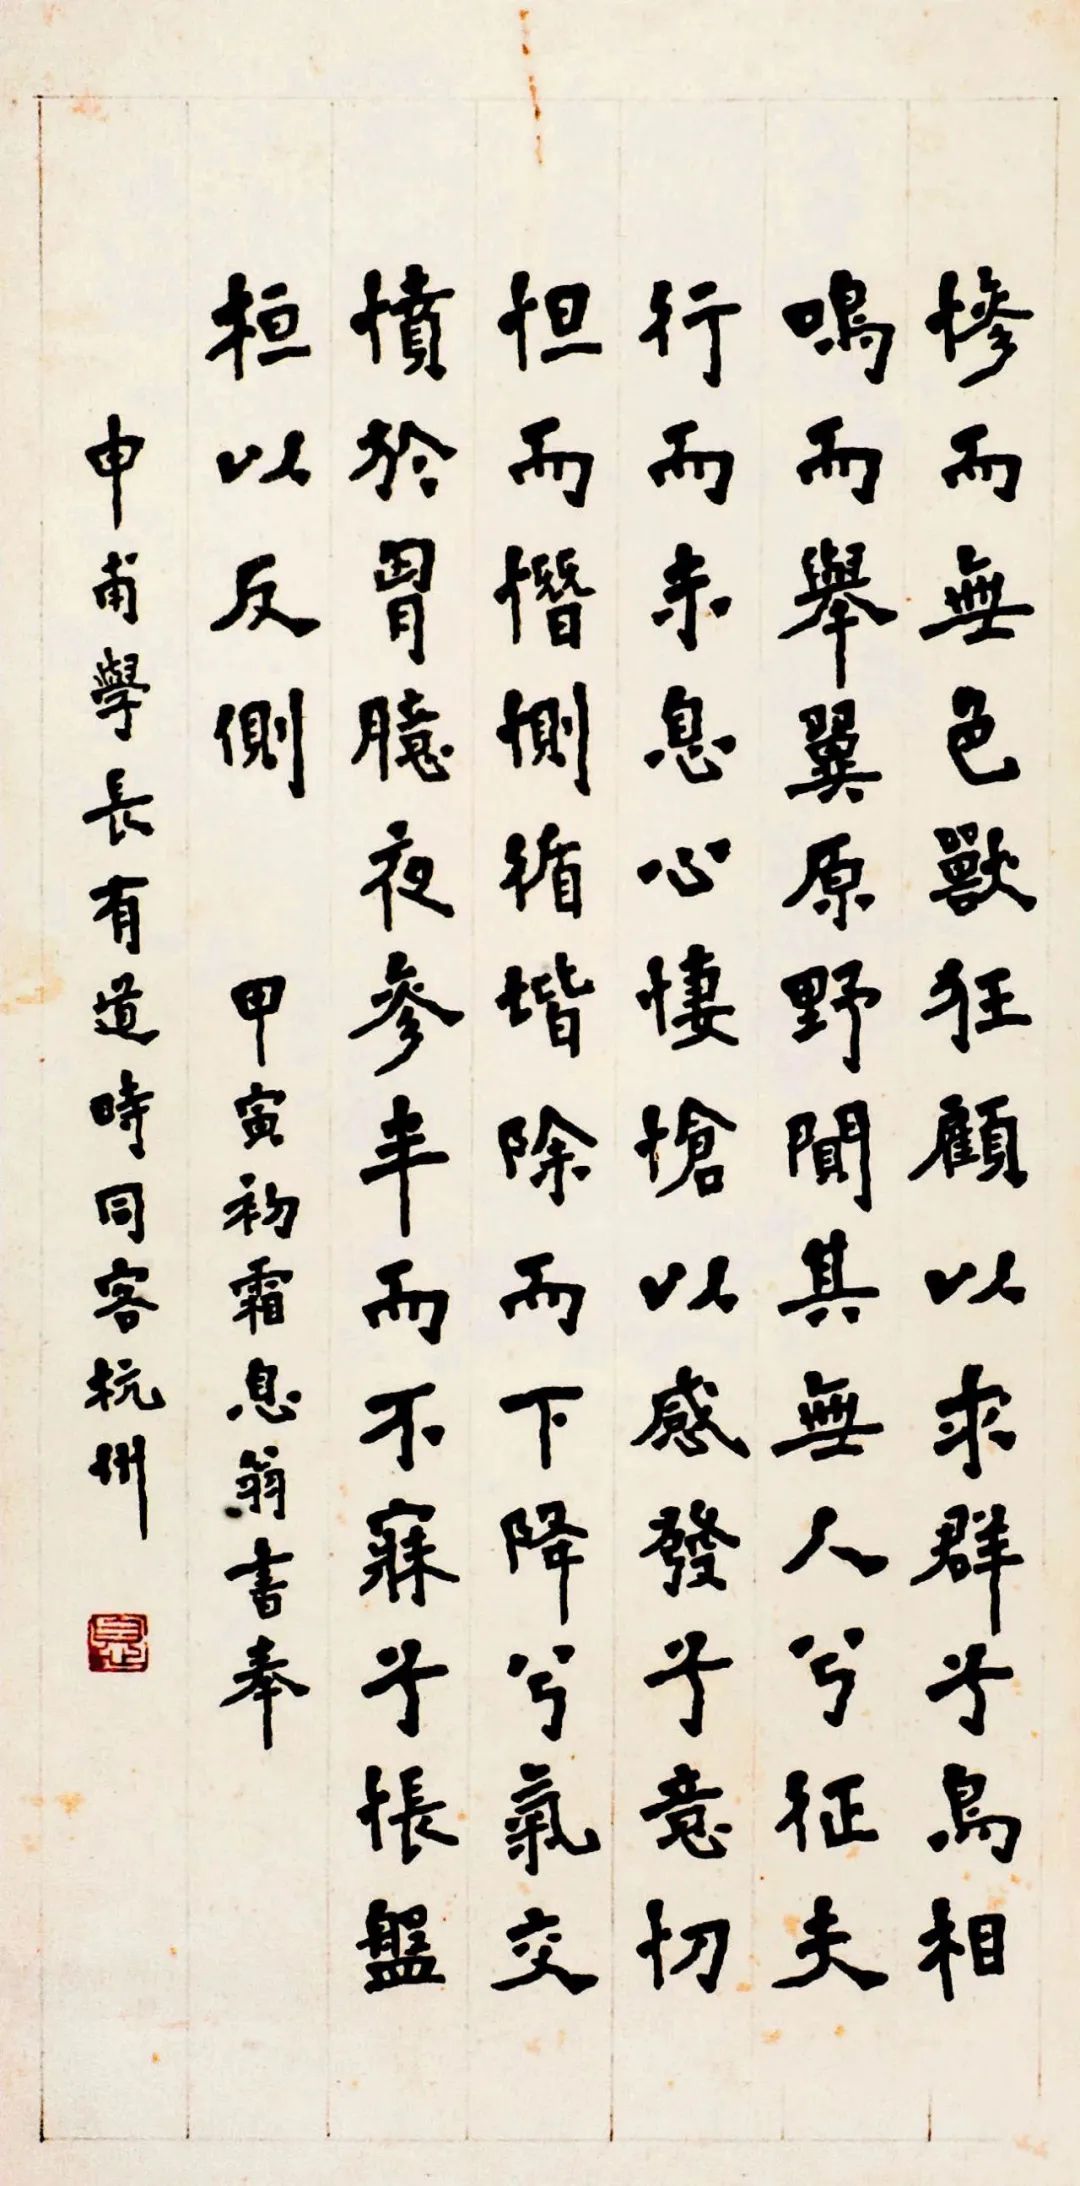 慘而無色獸狂顧以求群兮鳥相
鳴而舉翼原野闃其無人兮征夫
行而未息心悽愴以感發兮意忉
怛而憯惻循堦除而下降兮氣交
憤於胷臆夜參半而不寐兮悵盤
桓以反側
甲寅初霜息翁書奉
申甫學長有道時同客杭州